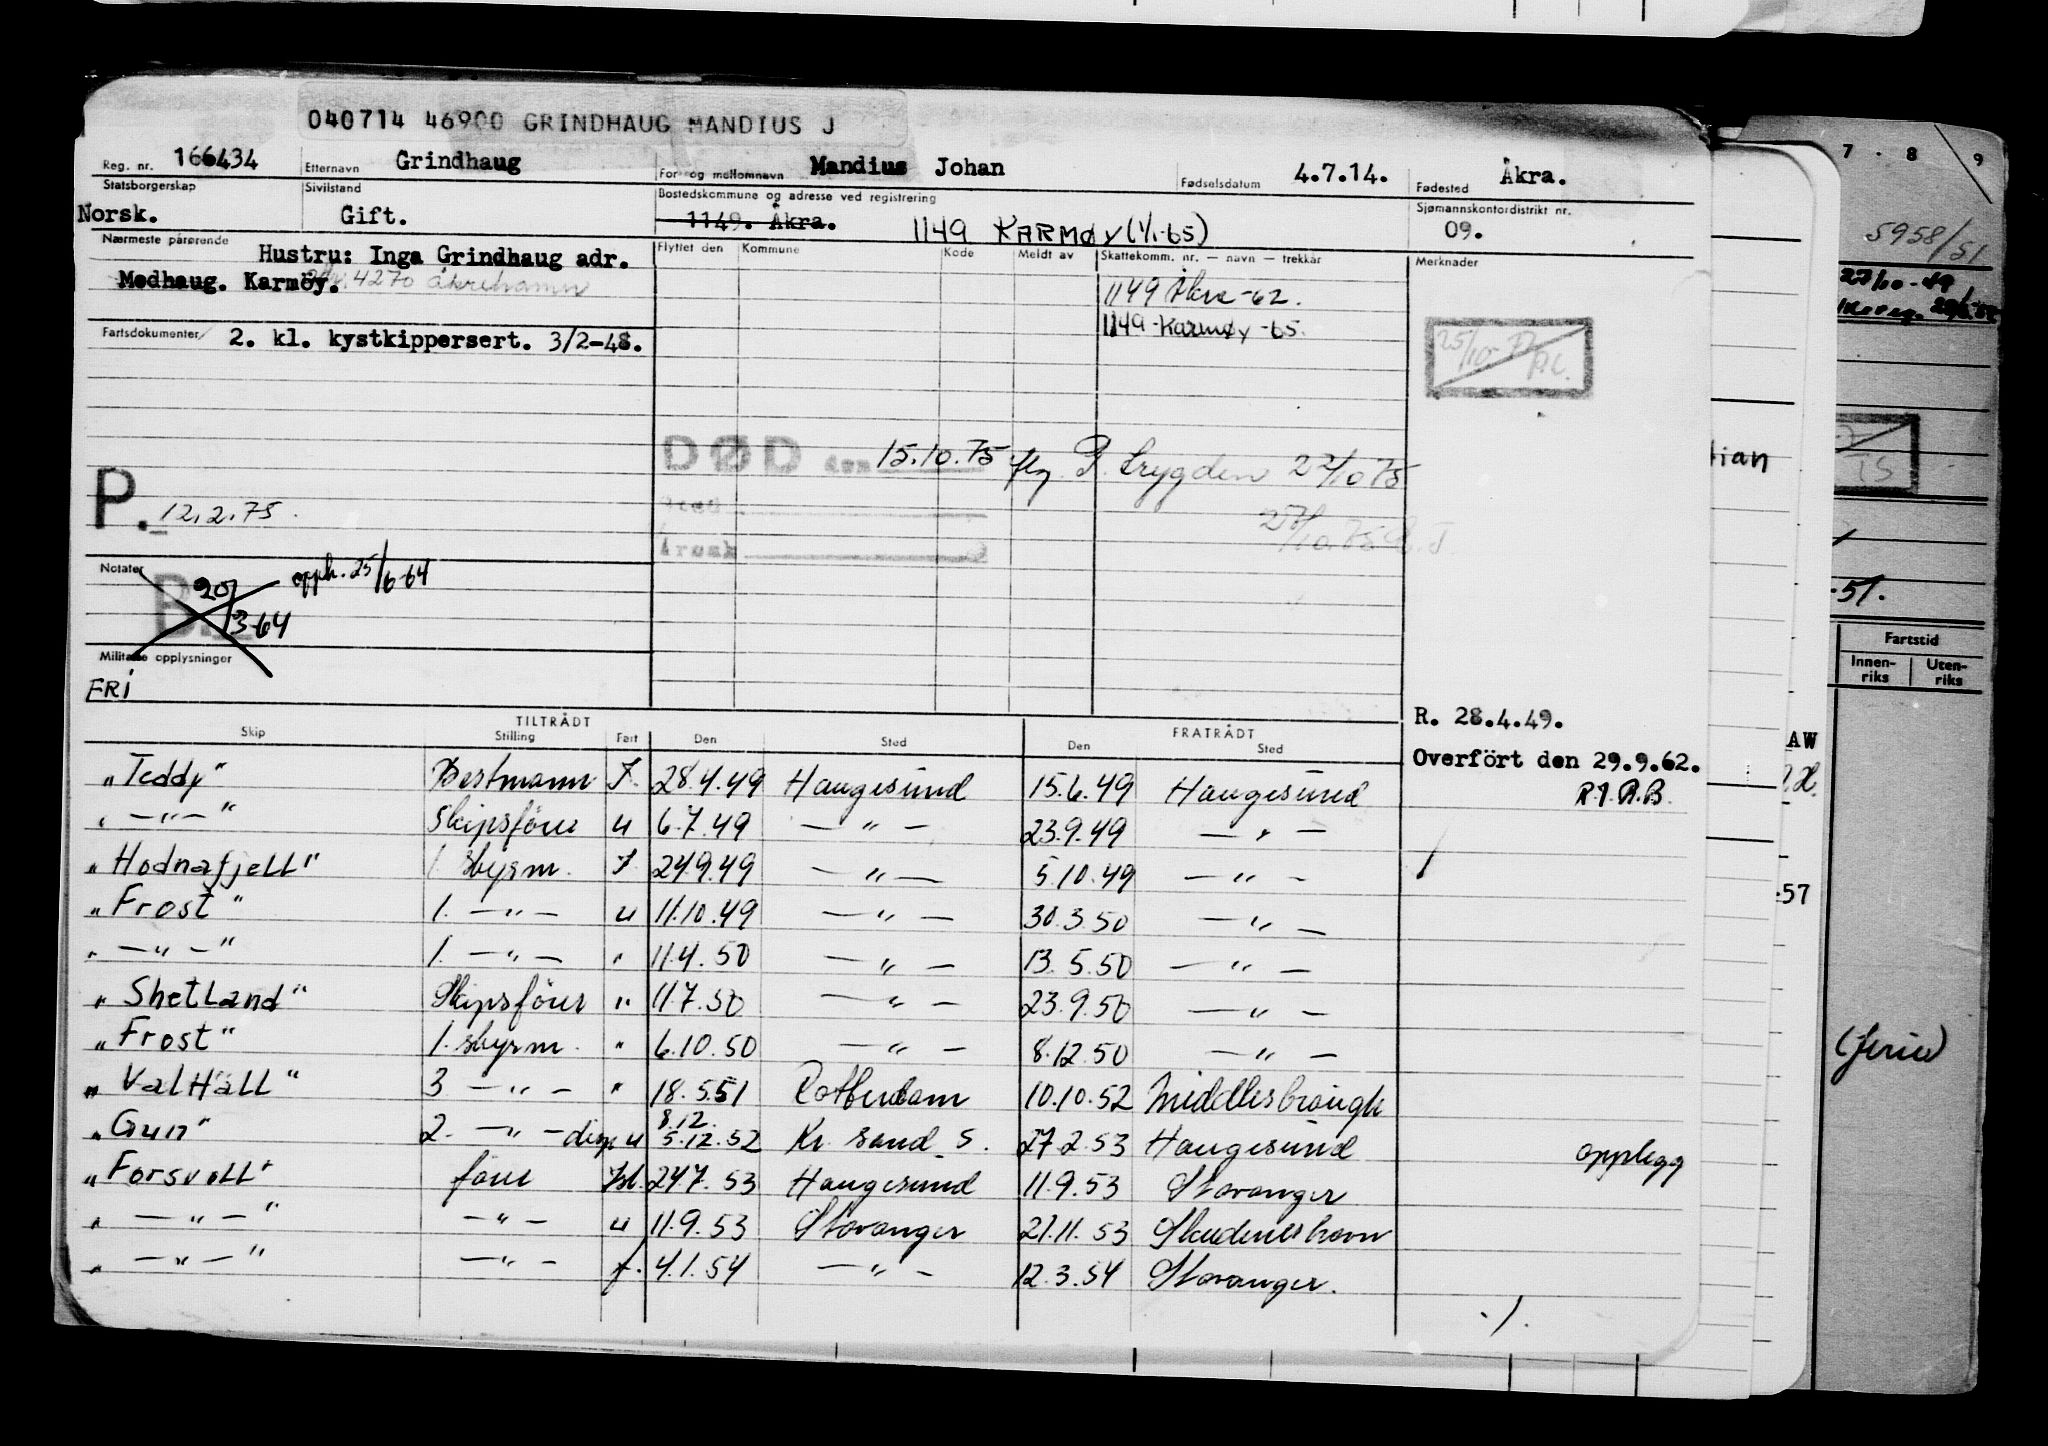 040714 46900 GRINDHAUG MANDIUS J
Reg. nr. 166434 Etternavn Grindhaug For og mellomnavn Mandius Johan Fødselsdatum 4.7.14. Fødested Åkra.
Statsborgerskap Sivilstand Bostedskommune og adresse ved registrering Sjømannskontordistrikt nr.
Norsk. Gift. 1149. Åkra. 1149 KARMØY (1/1-65) 09.
Nærmeste pårørende Hustru: Inga Grindhaug adr. Flyttet den Kommune Kode Meldt av Skattekomm. nr. — navn — trekkår Merknader
Medhaug. Karmöy. 4270 Åkrehamn 1149 Åkra -62.
Fartsdokumenter 2. kl. kystkippersert. 3/2-48. 1149 - Karmøy -65.
25/10-
DØD den 15.10.75 P. trygden 22/10 75
Sted
Årsak
P. 12.2.75.
Notater B. 20/3-64 opph. 25/6-64
Militære opplysninger
FRI
R. 28.4.49.
Overfört den 29.9.62.
TILTRÅDT FRATRÅDT
Skip Stilling Fart Den Sted Den Sted
"Teddy" Bestmann J. 28.4.49 Haugesund 15.6.49 Haugesund
" — " — " Skipsförer u 6.7.49 — " — 23.9.49 — " —
"Hodnafjell" 1 styrm. J 24.9.49 — " — 5.10.49 — " —
"Frost" 1. — " — u 11.10.49 — " — 30.3.50 — " —
" — " — " 1. — " — " 11.4.50 — " — 13.5.50 — " —
"Shetland" Skipsförer " 11.7.50 — " — 23.9.50 — " —
"Frost" 1. styrm. " 6.10.50 — " — 8.12.50 — " —
"ValHall" 3 — " — " 18.5.51 Rotterdam 10.10.52 Middlesbrough
8.12.
"Gun" 2. — " — disp u 5.12.52 Kr. sand S. 27.2.53 Haugesund opplegg
"Forsvoll" förer 24.7.53 Haugesund 11.9.53 Stavanger
" — " — " — " — u 11.9.53 Stavanger 21.11.53 Skudeneshavn
" — " — " — " — f. 4.1.54 — " — 12.3.54 Stavanger.
./.
7 - 8 9
5958/51
27/10-49
tian
-51.
Fartstid
Innen-riks Uten-riks
AW
-57